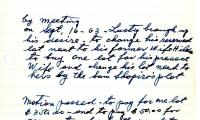 by meeting
on Sept. 16-63 - Lusty brought up
his desire - to change his
lot next to his former wife
to buy one lot for his present
wife and change his lot next to
hers by the Sam Shapiro's plot
Motion passed - to pay for one lot
$ and to pay $50.00 for